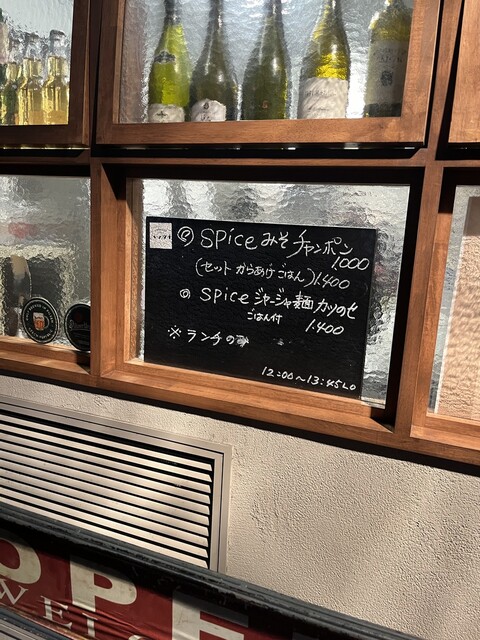 ◎ SPice みそ チャンポン
1.000
(セット からあげ ごはん) 1.400
◎ SPice ジャージャ麺 カツのせ
ごはん付 1.400
※ ランチのみ
12:00〜13:45LO
OPE
WEL